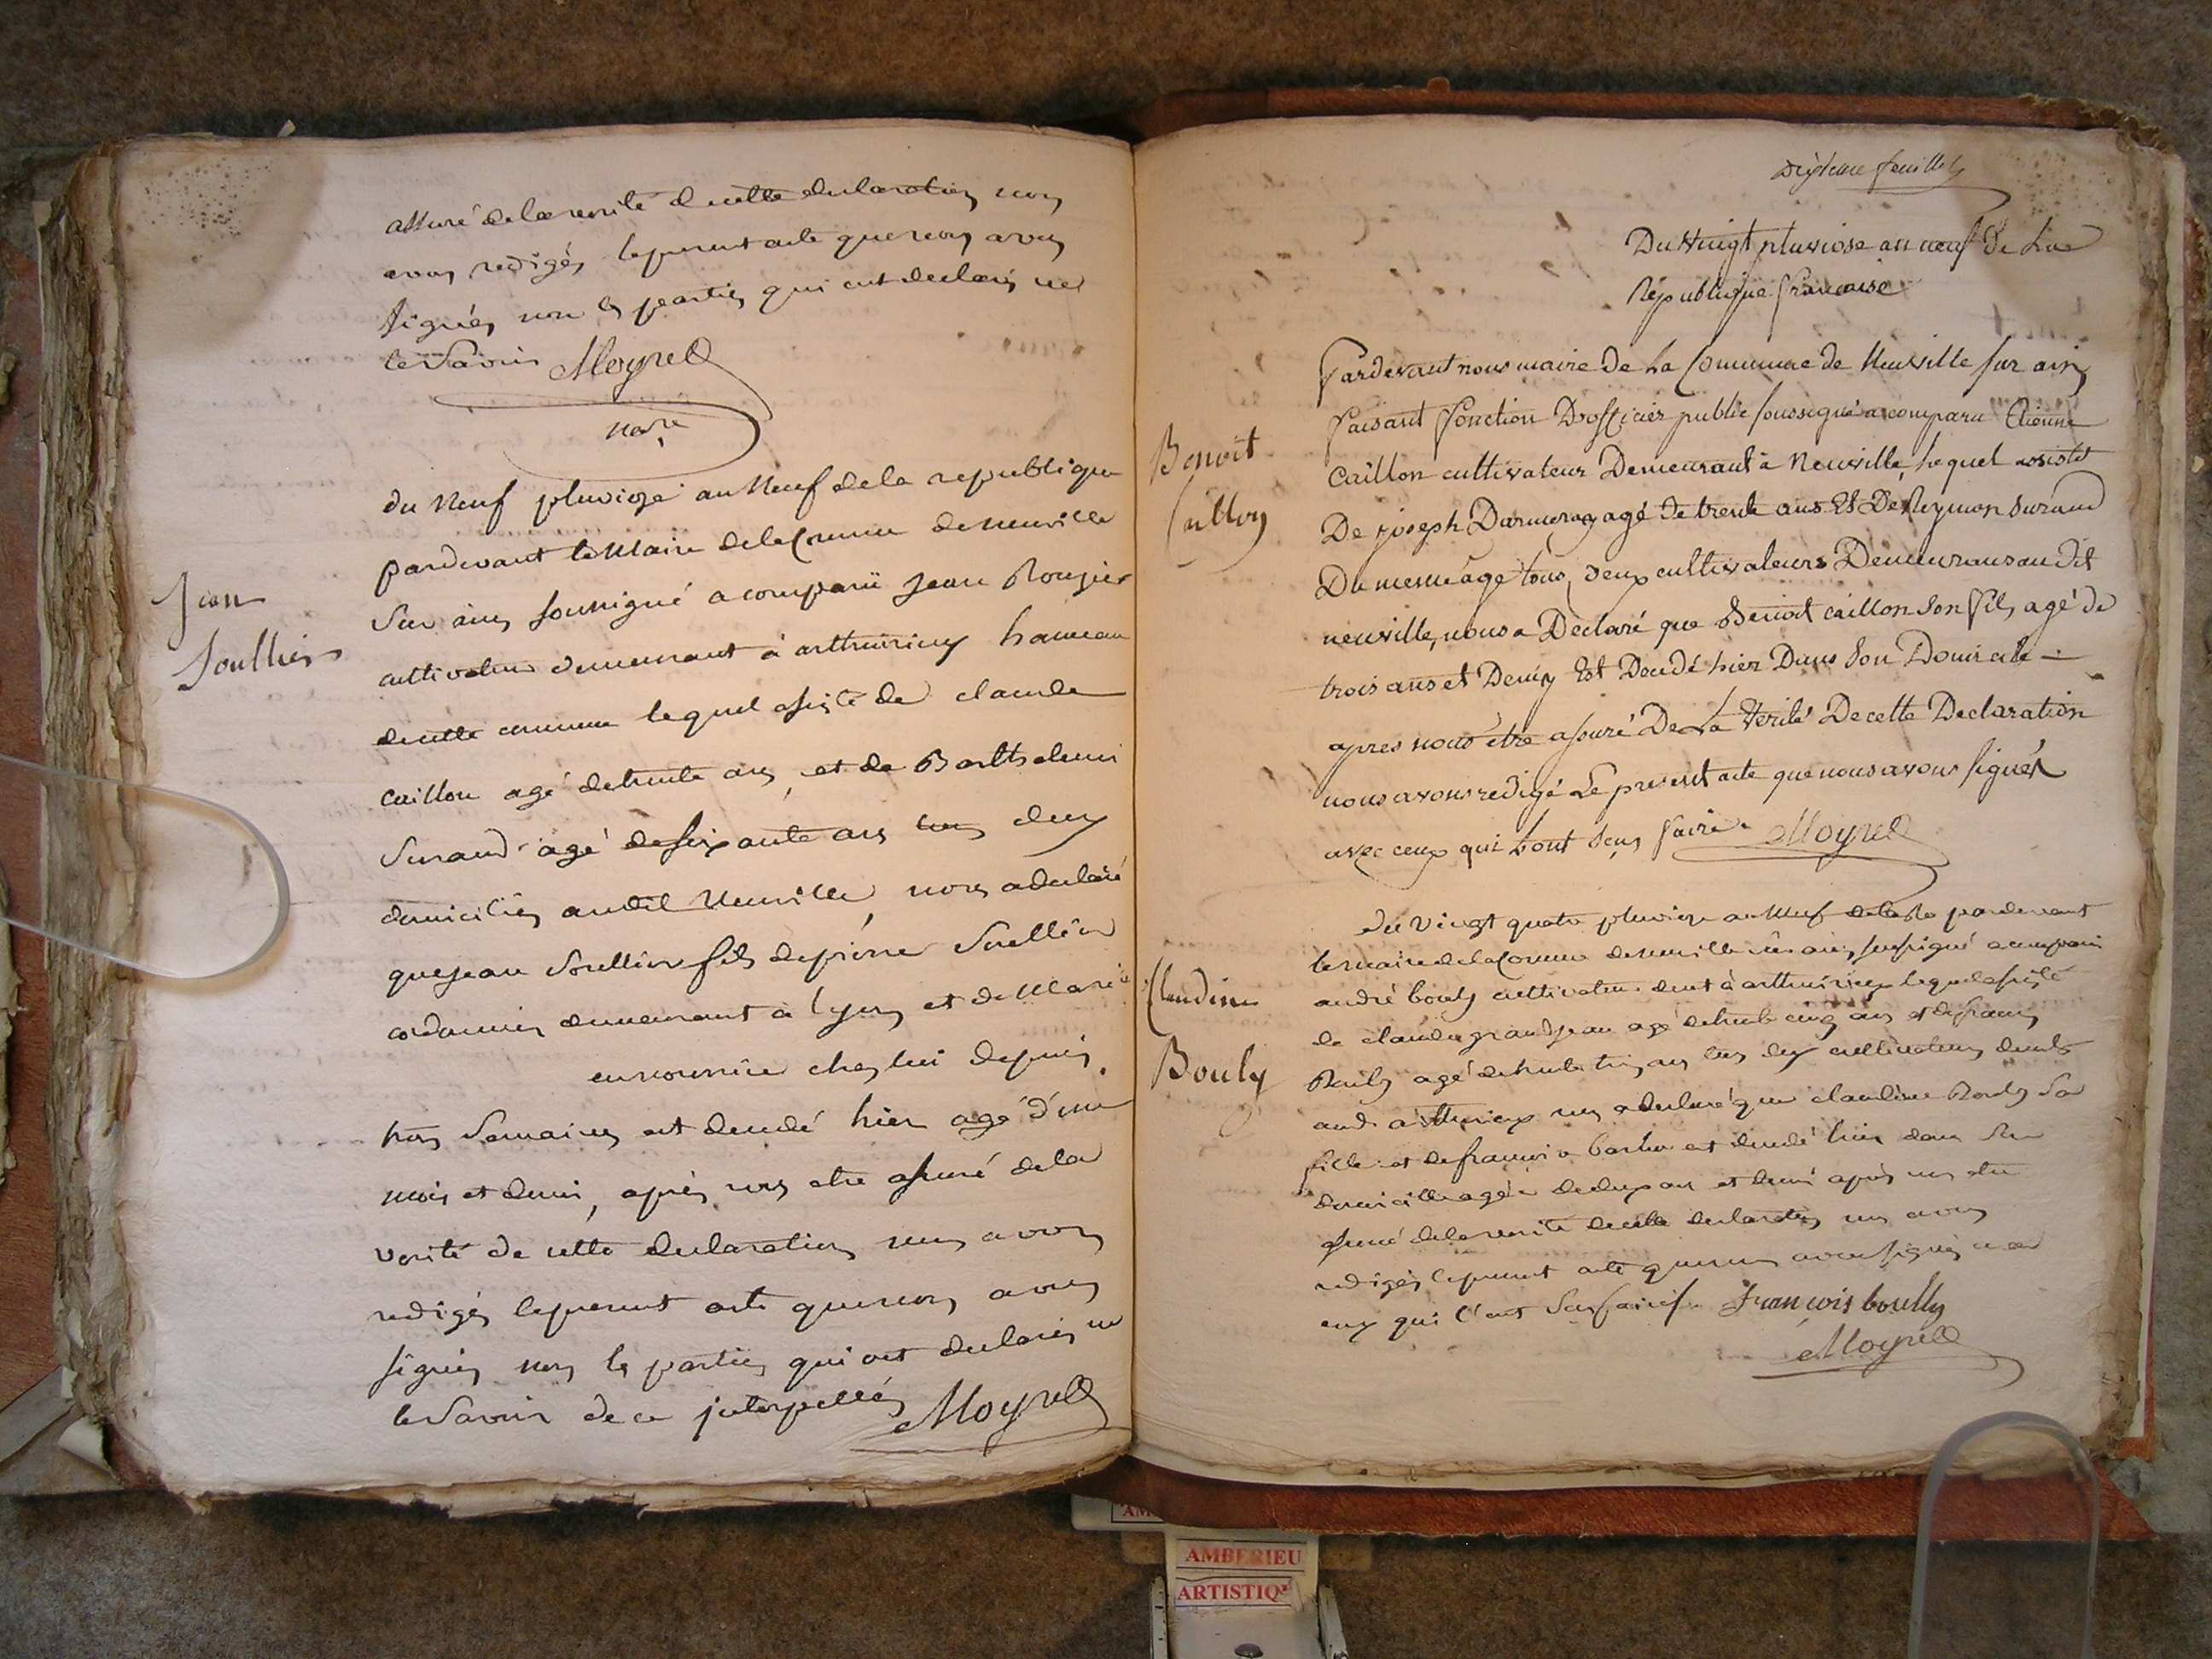 assuré de la verité de cette declaration nous
avons redigés le present acte que nous avons
signés non les parties qui ont declarés ne
le Savoir Moyret
du Neuf pluviose an Neuf de la republique
pardevant le Maire de la Comune de neuville
Sur ain soussigné a comparu Jean Rougier
Jean
Soullier
cultivateur demeurant à arthuiriey hameau
de cette commune lequel assisté de claude
caillon agé de trente ans, et de Barthelemi
durand agé de soixante ans tous deux
domiciliés audit Neuville, nous a declaré
que jean Soullier fils de pierre Soullier
cordonnier demeurant à lyon et de Marie
en nourrice chez lui depuis
trois Semaines est decedé hier agé d'un
mois et demi, après nous etre assuré de la
verité de cette declaration nous avons
redigés le present acte que nous avons
signés non les parties qui ont declarés ne
le Savoir de ce interpellés Moyret
Dixieme feuillet
Du Vingt pluviose an neuf De La
République francaise
Pardevant nous maire De La Commune de Neuville sur ain
faisant fonction D'officier public soussigné a comparu Etienne
Benoit
Caillon
Caillon cultivateur Demeurant à Neuville lequel assisté
De joseph agé de trente ans Et De Reymon durand
Du meme age tous deux cultivateurs Demeurans au dit
neuville, nous a Declaré que Benoit caillon son fils agé de
trois ans et Demy Est Decedé hier Dans son Domicile
apres nous être assuré De La Verité De cette Declaration
nous avons redigé Le present acte que nous avons signés
avec ceux qui L'ont sçu faire Moyret
du vingt quatre pluviose an Neuf de la Re pardevant
le maire de la Comune de neuville sur ain soussigné a comparu
Claudine
Bouly
andré bouly cultivateur demt à arthuiriey lequel assisté
de claude grandjean agé de trente cinq ans et de francois
Bouly agé de trente trois ans tous deux cultivateurs demts
aud. arthuriey nous a declaré que claudine Bouly Sa
fille et de francoise est decedé hier dans Son
domicille agée de deux ans et demi après nous etre
assuré de la verité de cette declaration nous avons
redigés le present acte que nous avons signés avec
eux qui l'ont Sçu faire. Francois boully
Moyret
AMBERIEU
ARTISTIQUE